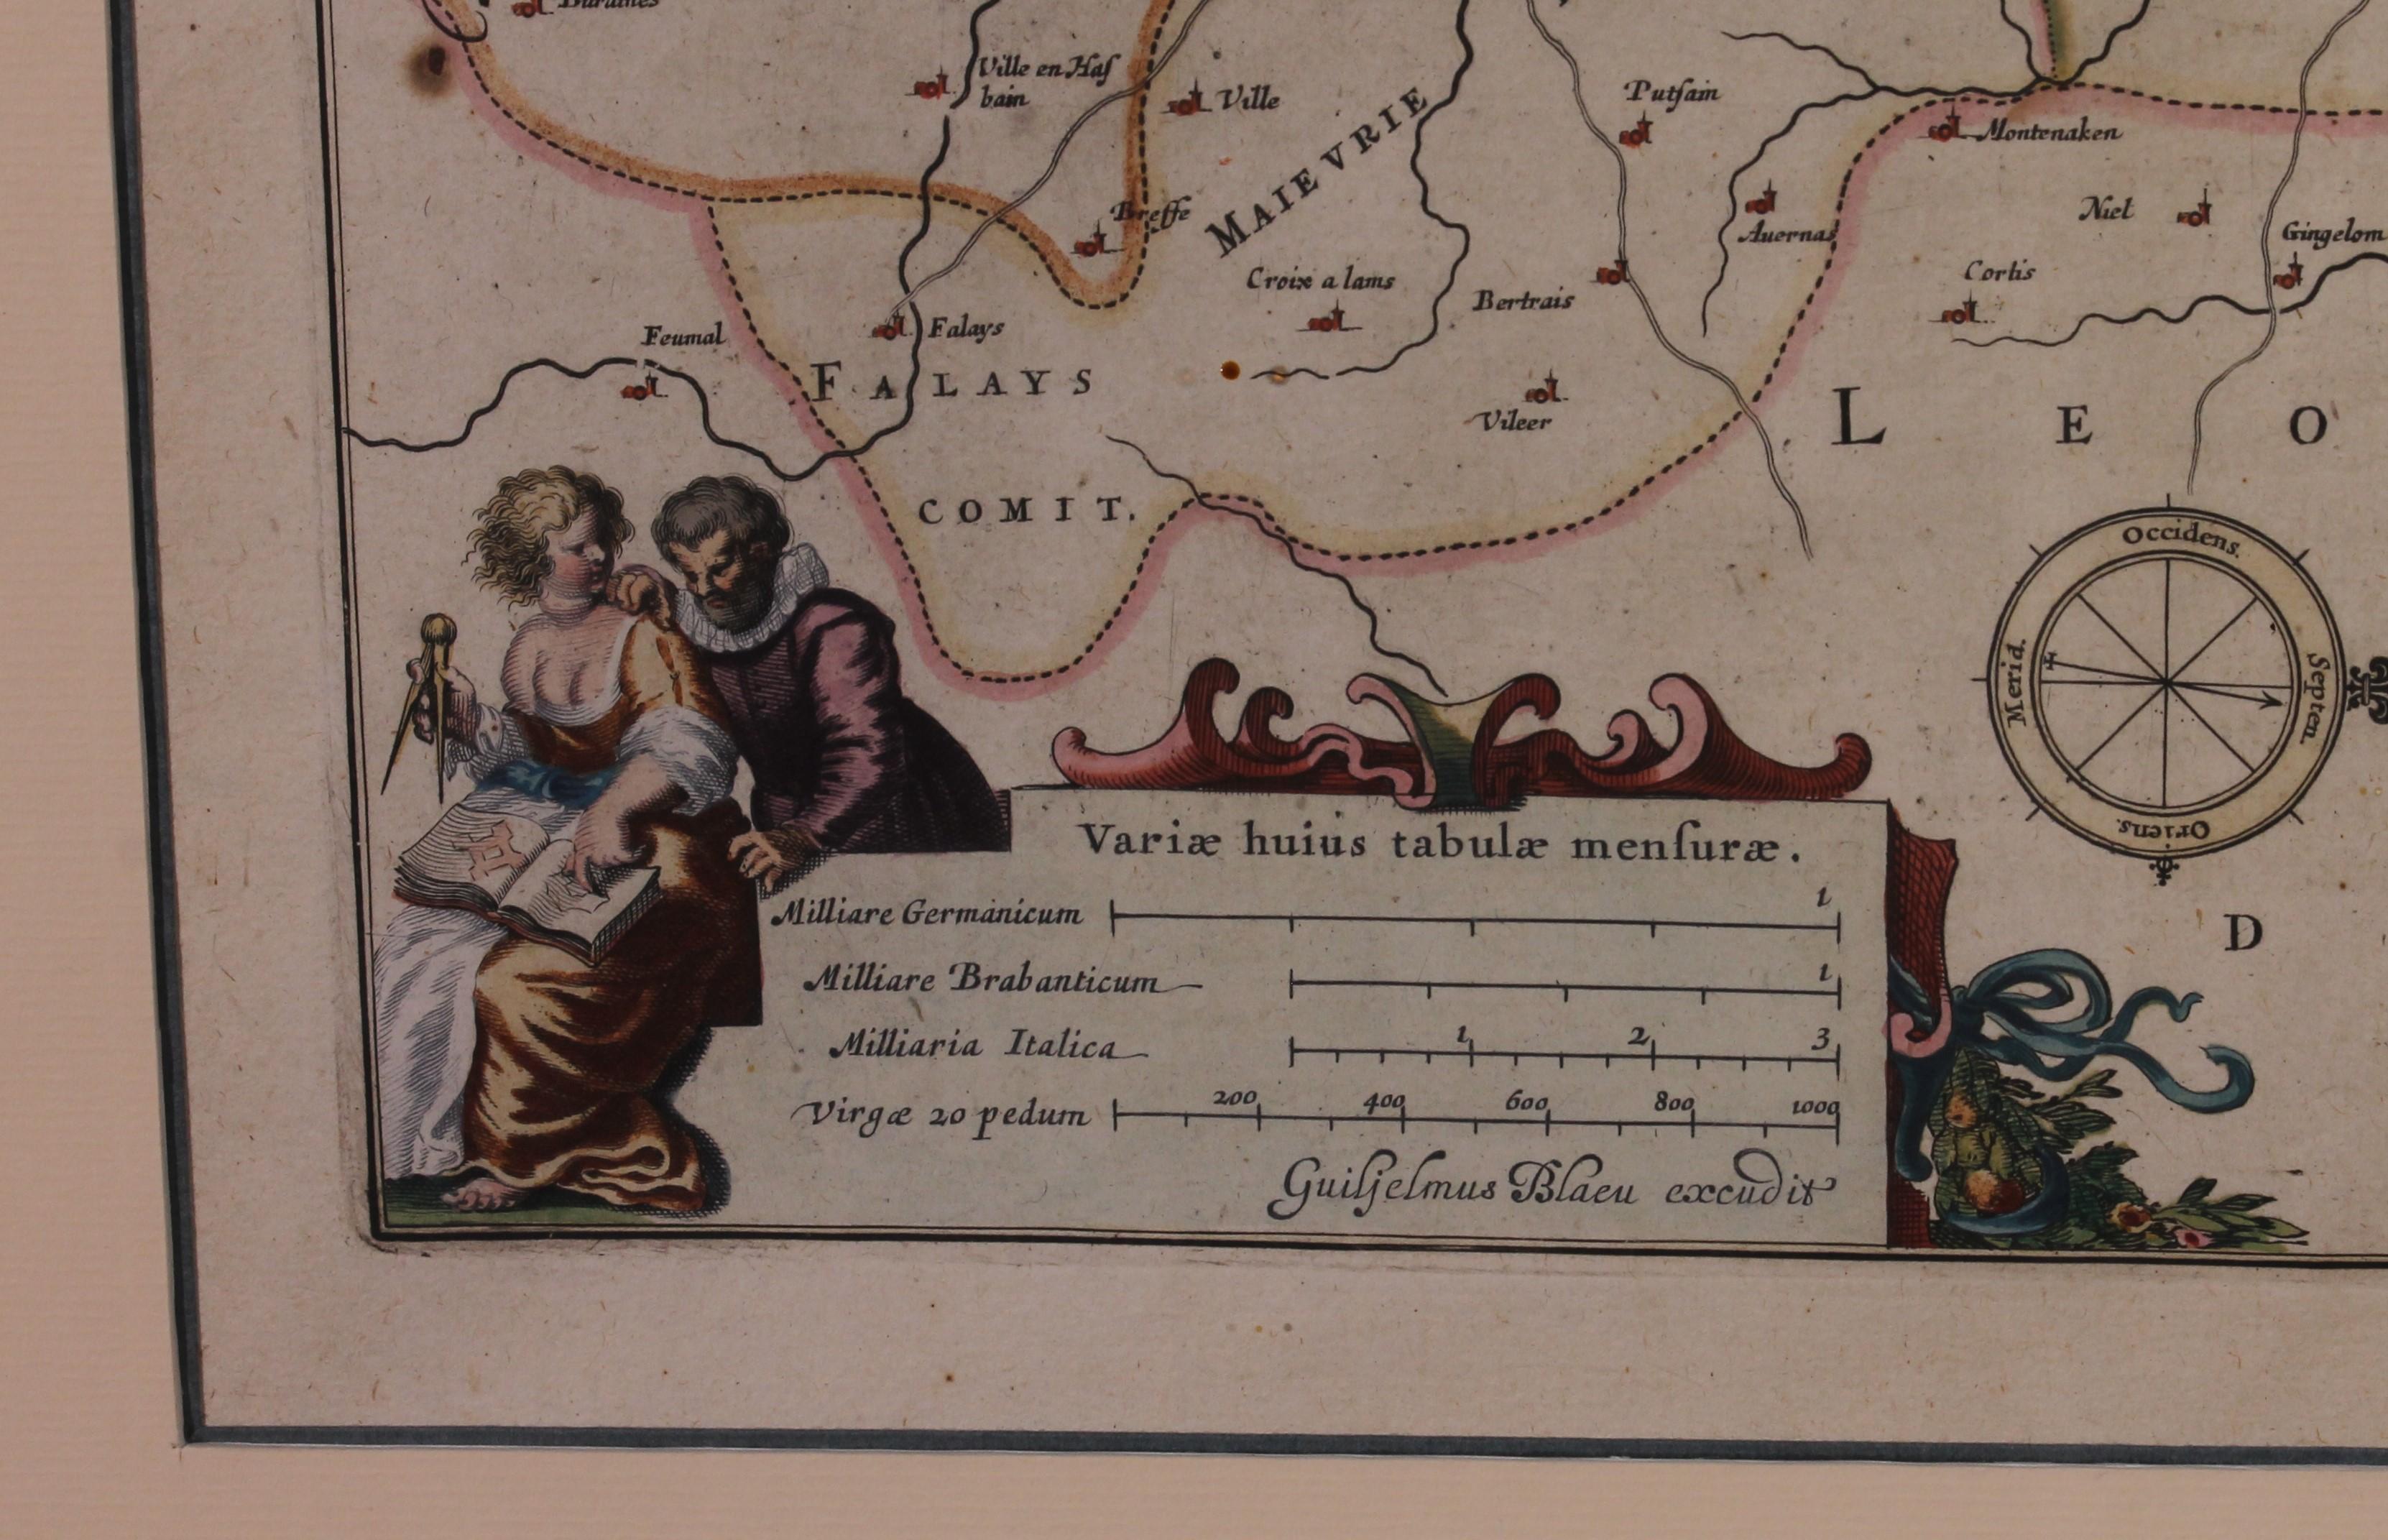 Ville en Haſ
bain
Ville
MAIEVRIE
Putſain
Montenaken
Breffe
Niel
Auernas
Gingelom
Croix a lams
Bertrais
Cortis
Feumal
Falays
FALAYS
Vileer
L E O
COMIT.
Occidens.
Merid.
Septem.
Oriens.
D
Variæ huius tabulæ menſuræ.
Milliare Germanicum 1
Milliare Brabanticum 1
Milliaria Italica 1 2 3
Virgæ 20 pedum 200 400 600 800 1000
Guiljelmus Blaeu excudit